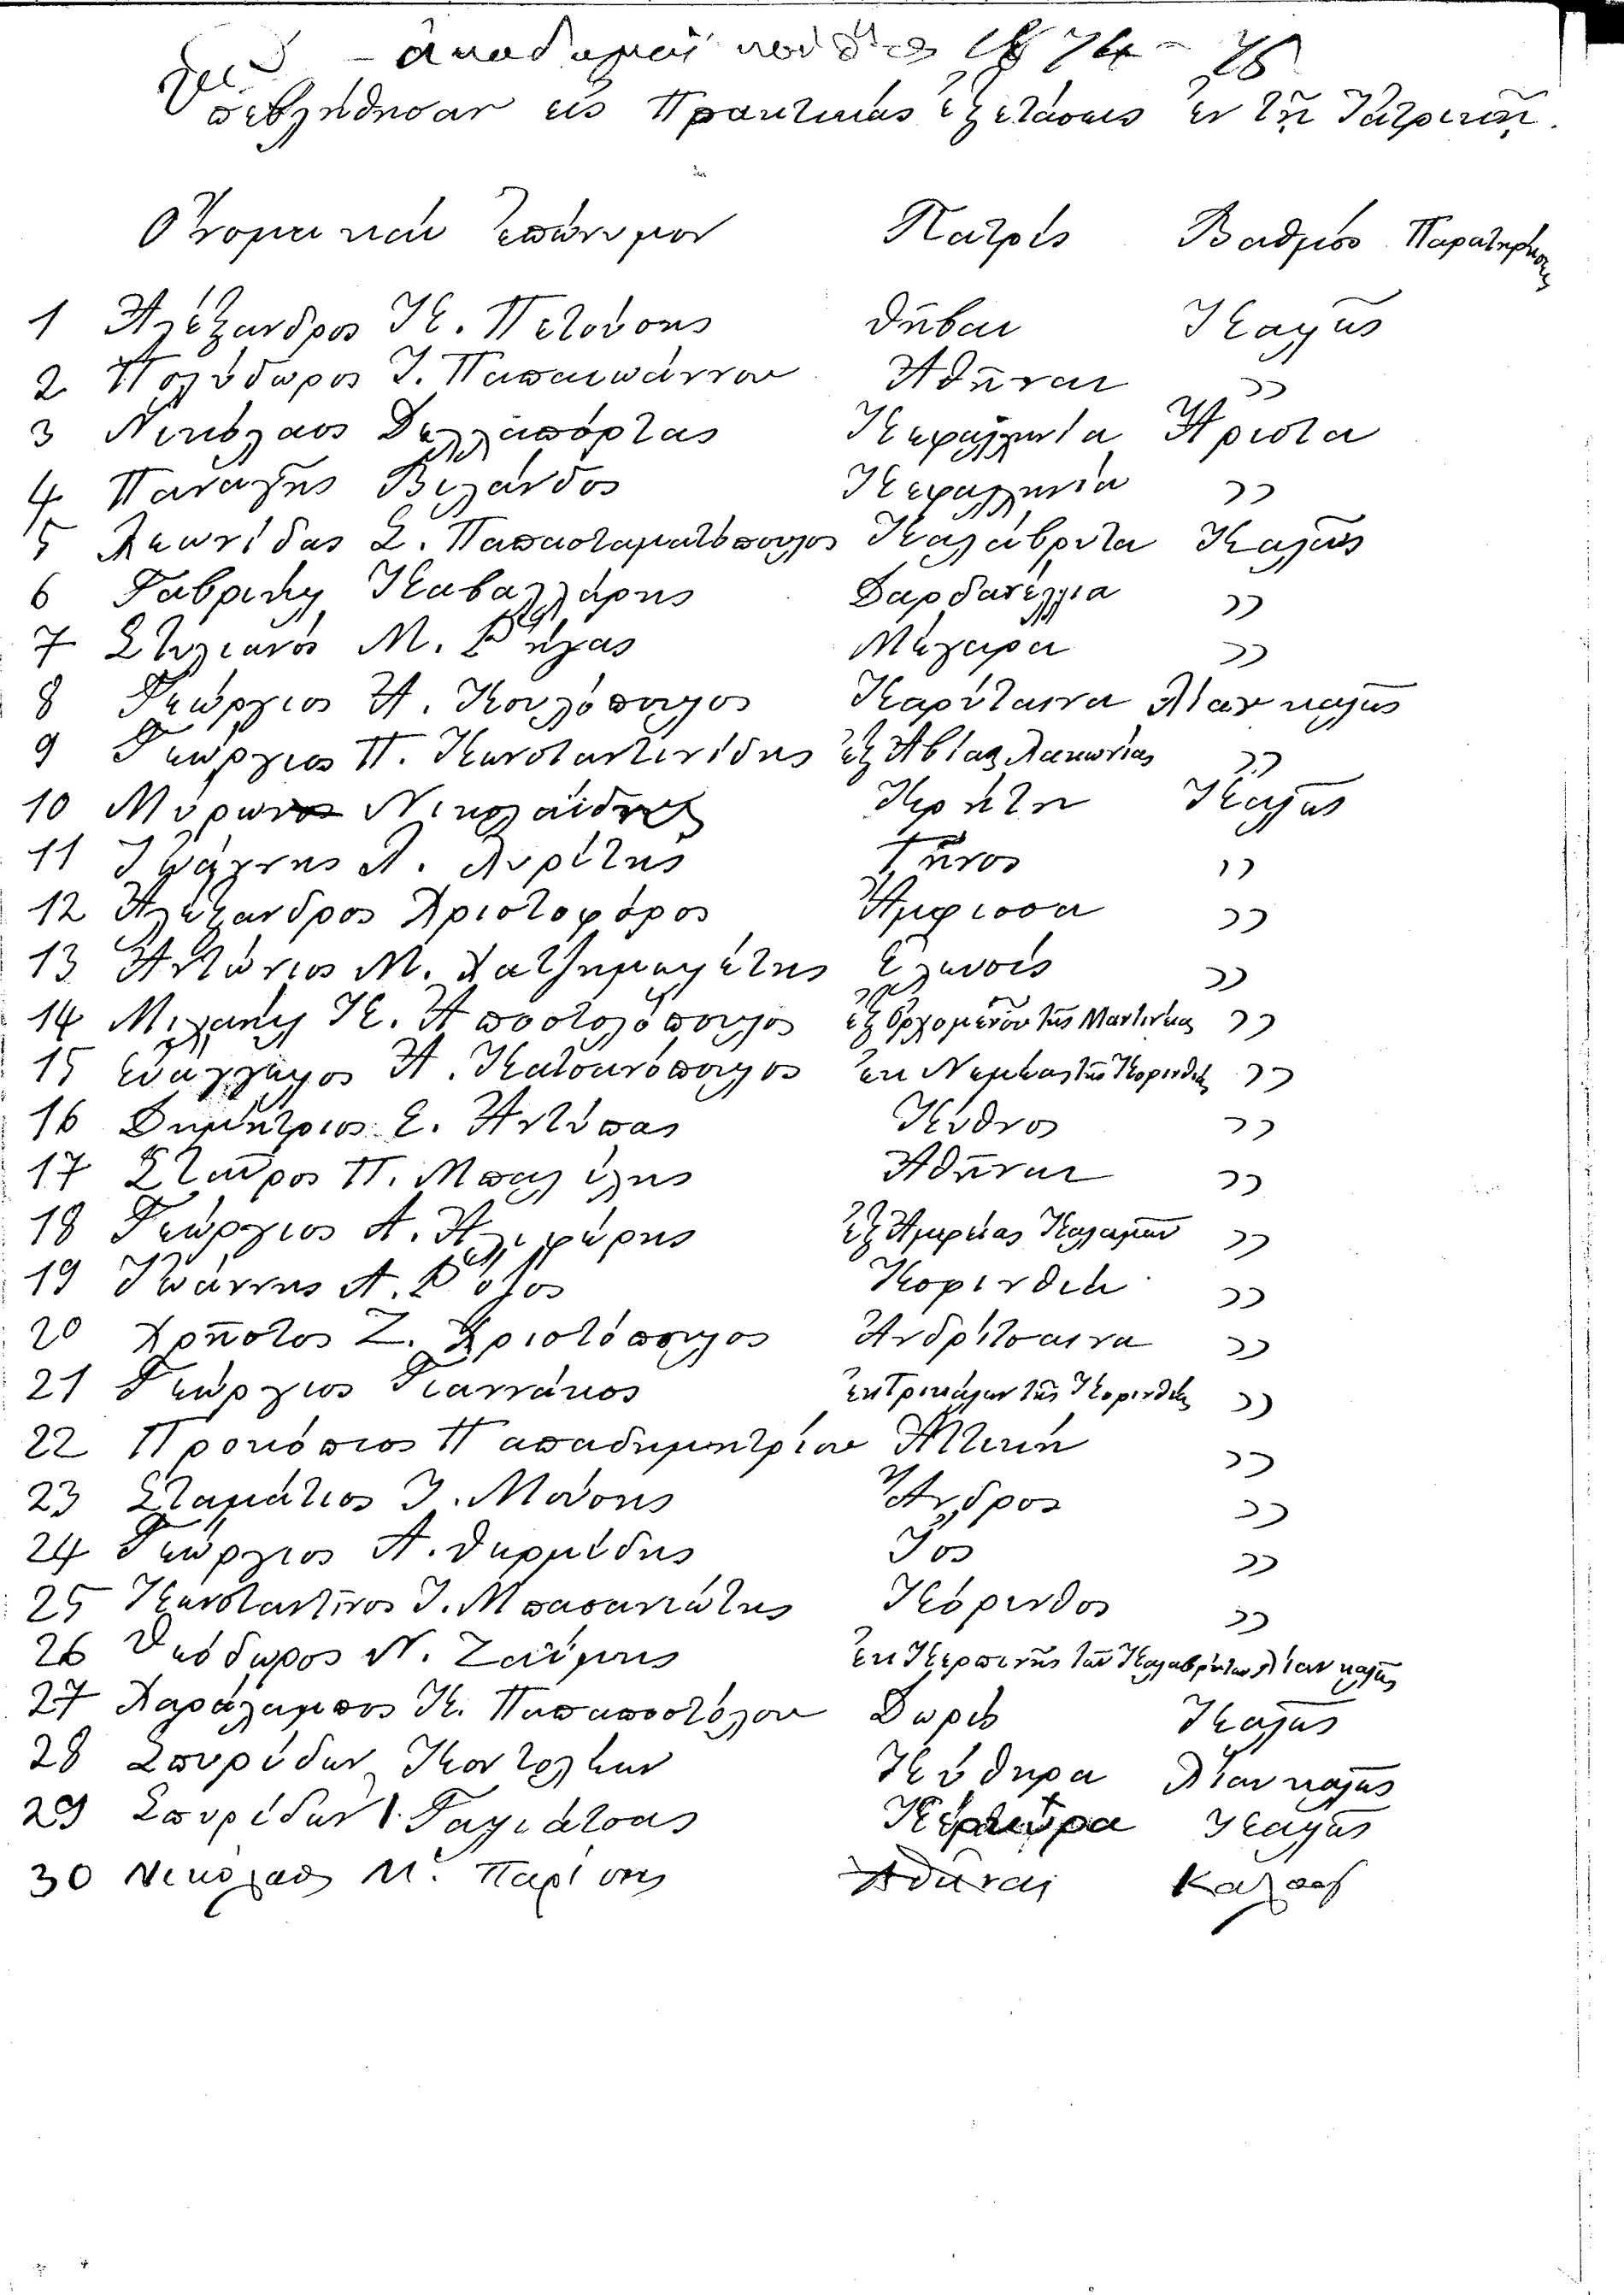 ἀκαδημαϊκοῦ ἔτους 1874-75
Προσεκλήθησαν εἰς Πρακτικὰς ἐξετάσεις ἐν τῇ Ἰατρικῇ.
Ὄνομα καὶ Ἐπώνυμον Πατρίς Βαθμός Παρατηρήσεις
1 Ἀλέξανδρος Κ. Πετσούσης Θῆβαι Καλῶς
2 Πολύδωρος Ι. Παπαϊωάννου Ἀθῆναι »
3 Νικόλαος Δελλαπόρτας Κεφαλληνία Ἄριστα
4 Παναγῆς Βιζάνδος Κεφαλληνία »
5 Λεωνίδας Σ. Παπασταματόπουλος Καλάβρυτα Καλῶς
6 Γαβριὴλ Καβαλλάρης Δαρδανέλλια »
7 Στυλιανὸς Μ. Βέγας Μέγαρα »
8 Γεώργιος Α. Κουλόπουλος Καρύταινα Λίαν καλῶς
9 Γεώργιος Π. Κωνσταντινίδης ἐξ Ἀβίας Λακωνίας »
10 Μύρων Νικολαΐδης Κρήτη Καλῶς
11 Ἰωάννης Λ. Λυρίτης Τῆνος »
12 Ἀλέξανδρος Χριστοφόρος Ἄμφισσα »
13 Ἀντώνιος Μ. Χατζημελέτης Ἐλευσίς »
14 Μιχαὴλ Κ. Ἀποστολόπουλος ἐξ Ὀρχομενοῦ τῆς Μαντινείας »
15 Εὐάγγελος Α. Κατσικόπουλος ἐκ Νεμέας τῆς Κορινθίας »
16 Δημήτριος Σ. Ἀντύπας Κύθνος »
17 Σταῦρος Π. Μπαλέλης Ἀθῆναι »
18 Γεώργιος Α. Ἀλιφέρης ἐξ Ἀμφείας Καλαμῶν »
19 Ἰωάννης Α. Βόλος Κορινθία »
20 Χρῆστος Ζ. Χριστόπουλος Ἀνδρίτσαινα »
21 Γεώργιος Γιαννάκος ἐκ Τρικάλων τῆς Κορινθίας »
22 Προκόπιος Παπαδημητρίου Ἀττική »
23 Σταμάτιος Ι. Μούσης Ἄνδρος »
24 Γεώργιος Α. Θερμίδης Ἴος »
25 Κωνσταντῖνος Ι. Μπασακιώτης Κόρινθος »
26 Θεόδωρος Ν. Ζαΐμης ἐκ Κερπινῆς τῶν Καλαβρύτων Λίαν καλῶς
27 Χαράλαμπος Κ. Παπαποστόλου Δωρίς Καλῶς
28 Σπυρίδων Κοντολέων Κύθηρα Λίαν καλῶς
29 Σπυρίδων Ι. Γαγιάτσας Κέρκυρα Καλῶς
30 Νικόλαος Ν. Παρίσης Ἀθῆναι Καλῶς